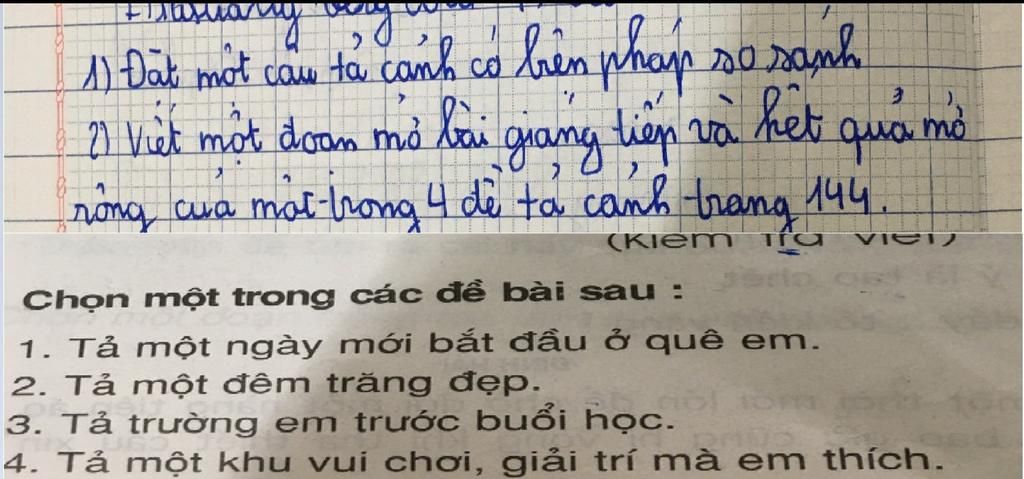 1) Đặt một câu tả cảnh có biện pháp so sánh
2) Viết một đoạn mở bài gián tiếp và kết quả mở
rộng của một trong 4 đề tả cảnh trang 144.
(Kiểm tra viết)
Chọn một trong các đề bài sau :
1. Tả một ngày mới bắt đầu ở quê em.
2. Tả một đêm trăng đẹp.
3. Tả trường em trước buổi học.
4. Tả một khu vui chơi, giải trí mà em thích.